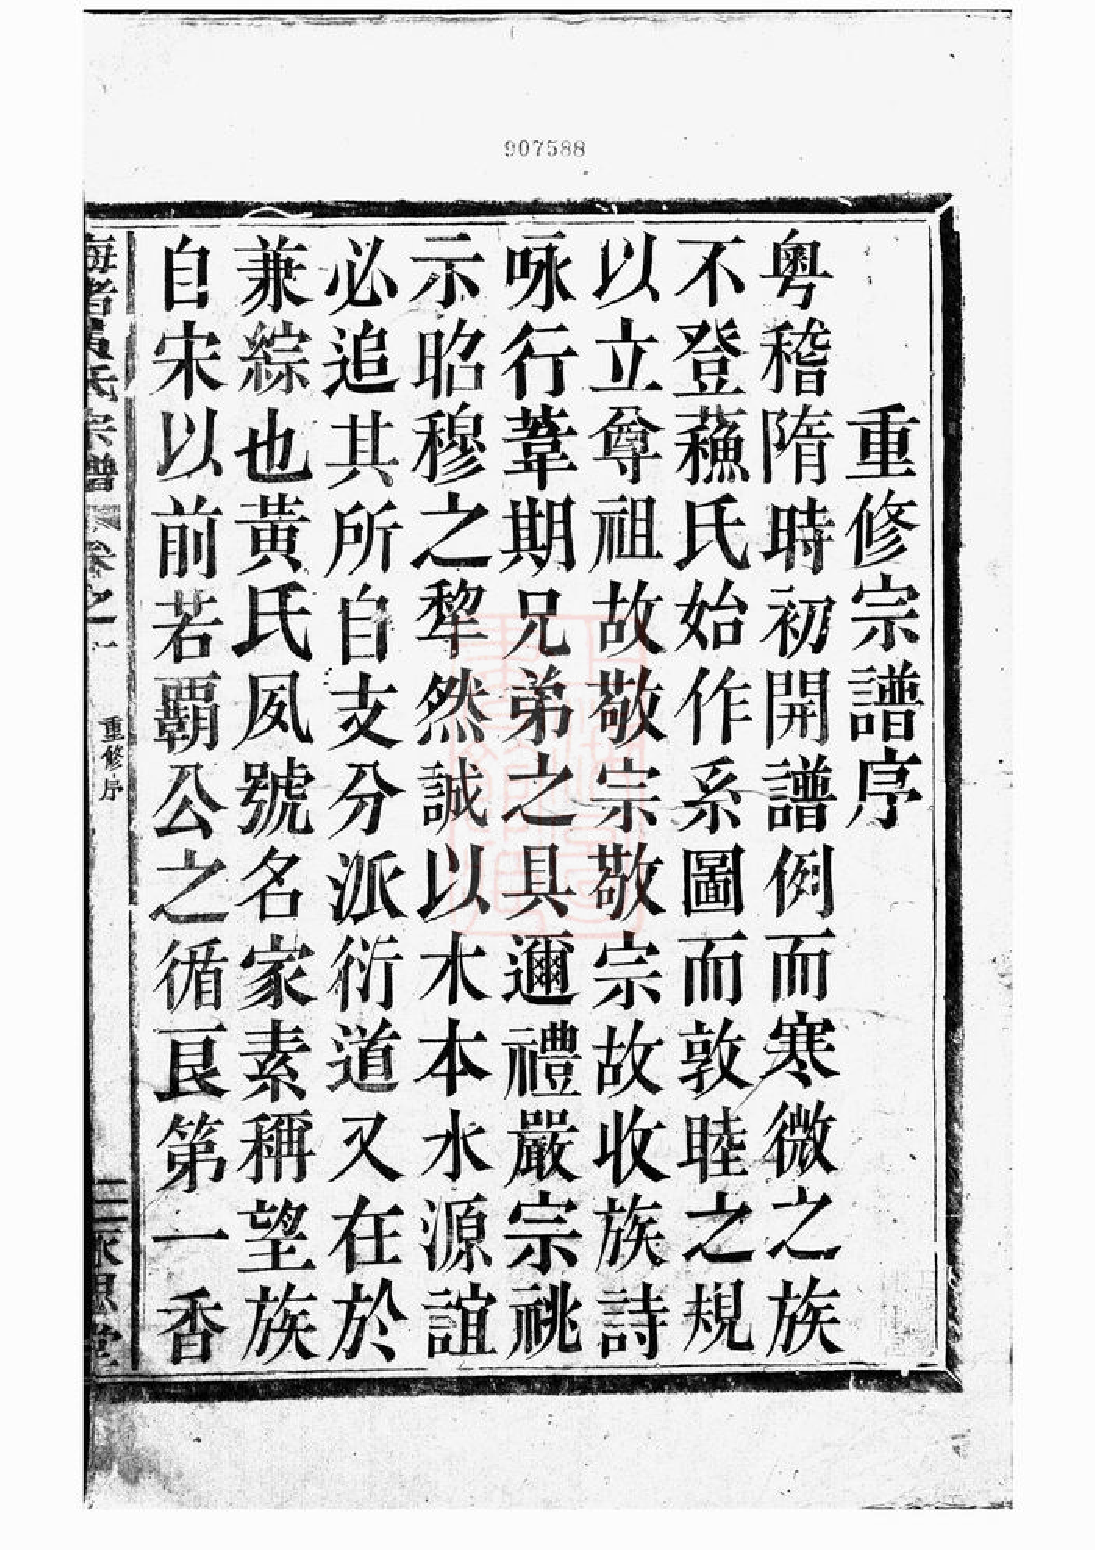 907588
重修宗譜序
粵稽隋時初開譜例而寒微之族
不登蘓氏始作系圖而敦睦之規
以立尊祖故敬宗敬宗故收族詩
咏行葦期兄弟之具邇禮嚴宗祧
示昭穆之犂然誠以木本水源誼
必追其所自支分派衍道又在於
兼綜也黃氏夙號名家素稱望族
自宋以前若霸公之循良第一香
海者黃氏宗譜 卷之一 重修序 二 永思堂